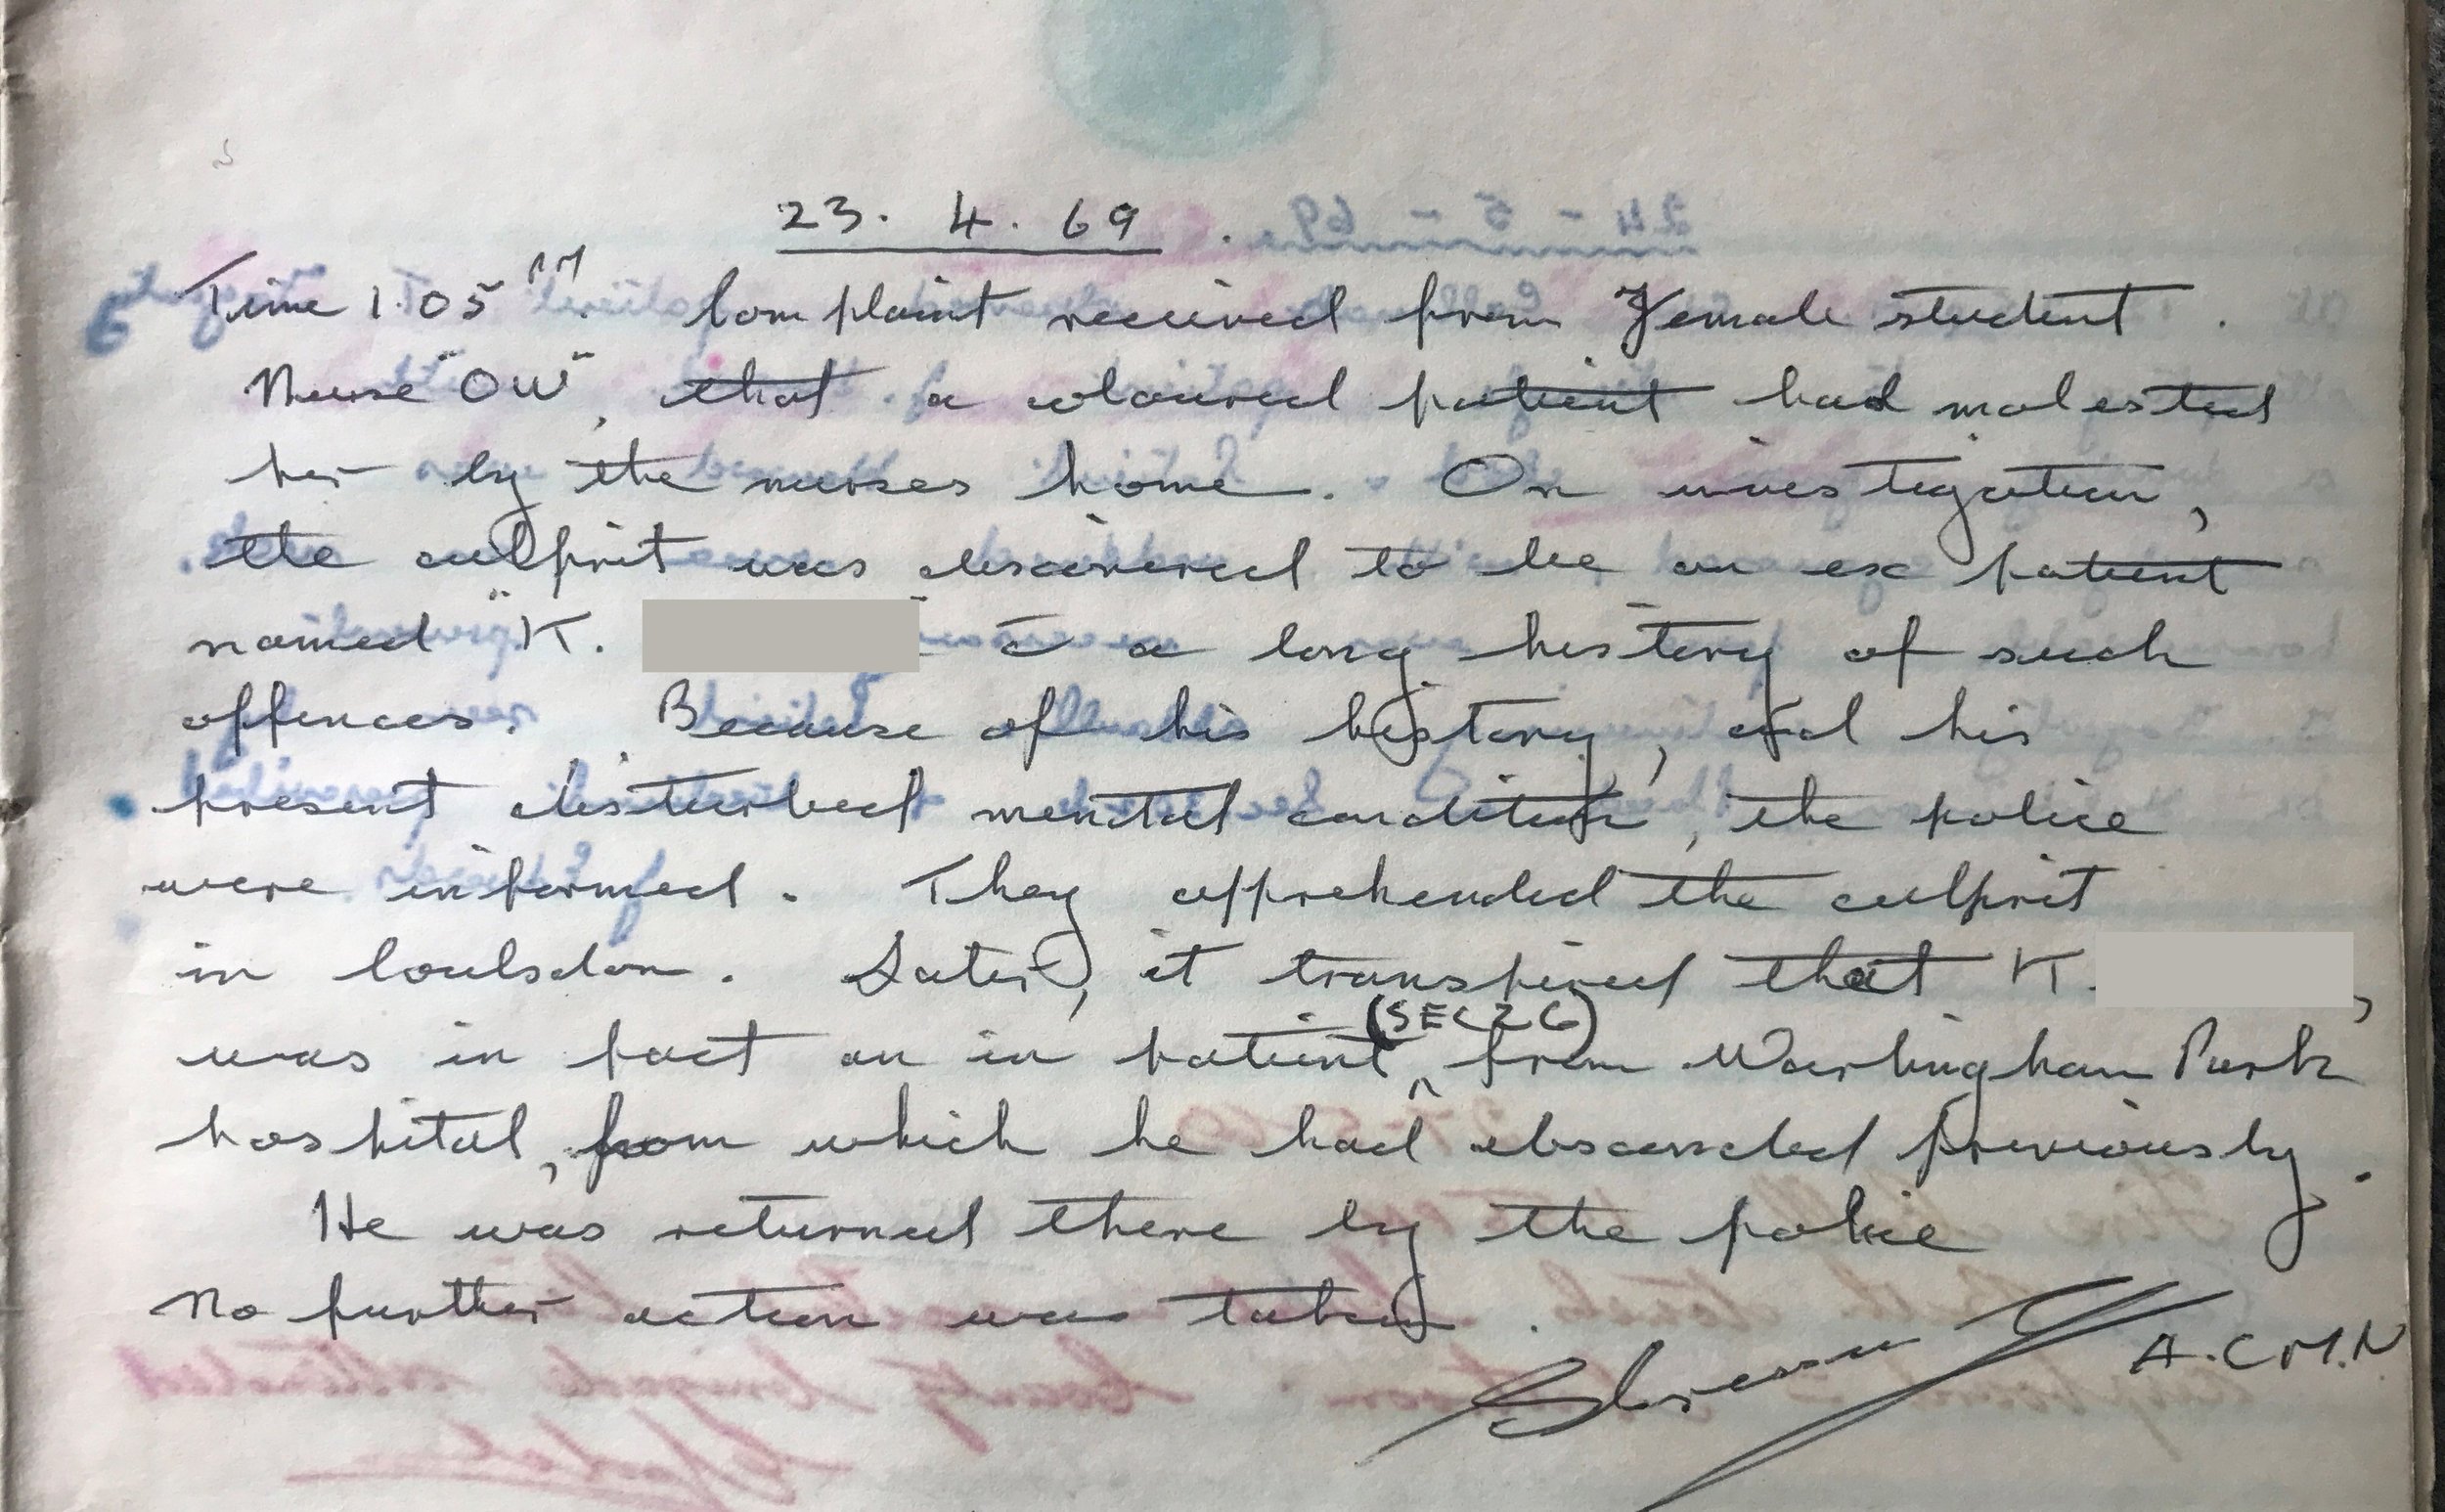 23. 4. 69
Time 1.05 PM. Complaint received from Female student.
Nurse "OW", that a coloured patient had molested
her by the nurses home. On investigation,
the culprit was discovered to be an ex patient
named "K. " c̄ a long history of such
offences. Because of his history, and his
present disturbed mental condition, the police
were informed. They apprehended the culprit
in Coulsdon. Later, it transpired that K. ,
was in fact an in patient (SEC 26) from Warlingham Park
hospital, from which he had absconded previously.
He was returned there by the police
No further action was taken.
A.C.M.N